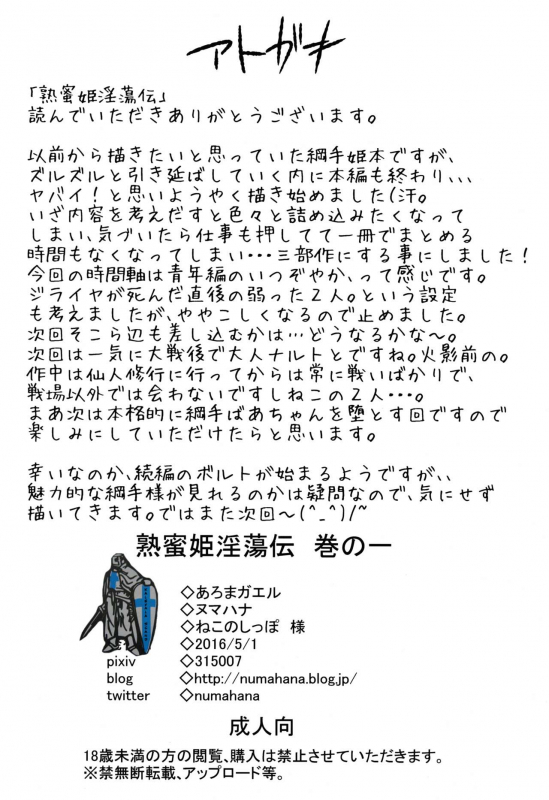 アトガキ
「熟蜜姫淫蕩伝」
読んでいただきありがとうございます。
以前から描きたいと思っていた綱手姫本ですが、
ズルズルと引き延ばしていく内に本編も終わり、、、
ヤバイ！と思いようやく描き始めました(汗。
いざ内容を考えだすと色々と詰め込みたくなって
しまい、気づいたら仕事も押してて一冊でまとめる
時間もなくなってしまい・・・三部作にする事にしました！
今回の時間軸は青年編のいつぞやか、って感じです。
ジライヤが死んだ直後の弱った２人。という設定
も考えましたが、ややこしくなるので止めました。
次回そこら辺も差し込むかは…どうなるかな～。
次回は一気に大戦後で大人ナルトとですね。火影前の。
作中は仙人修行に行ってからは常に戦いばかりで、
戦場以外では会わないですしねこの２人・・・。
まあ次は本格的に綱手ばあちゃんを堕とす回ですので
楽しみにしていただけたらと思います。
幸いなのか、続編のボルトが始まるようですが、、
魅力的な綱手様が見れるのかは疑問なので、気にせず
描いてきます。ではまた次回～(^_^)/~
熟蜜姫淫蕩伝　巻の一
◇あろまガエル
◇ヌマハナ
◇ねこのしっぽ　様
◇2016/5/1
pixiv ◇315007
blog ◇http://numahana.blog.jp/
twitter ◇numahana
成人向
18歳未満の方の閲覧、購入は禁止させていただきます。
※禁無断転載、アップロード等。